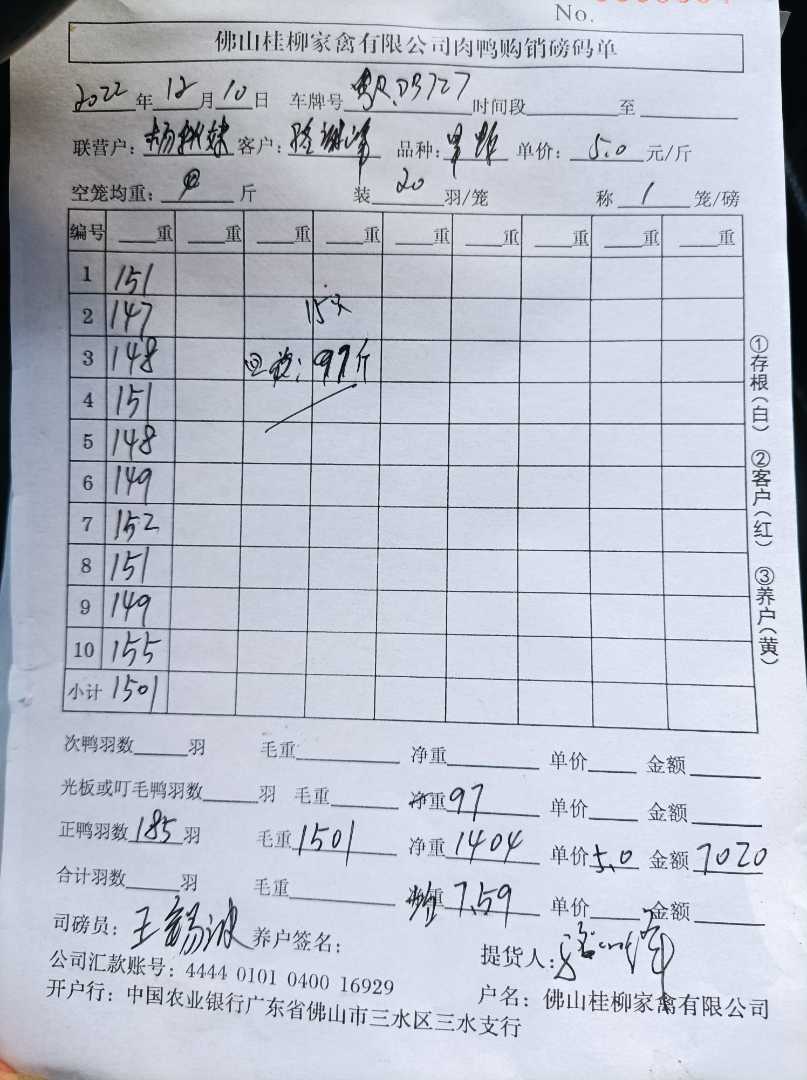 No.
佛山桂柳家禽有限公司肉鸭购销磅码单
2022年12月10日 车牌号 粤R.D3727 时间段 至
联营户: 杨 妹 客户: 品种: 单价: 5.0 元/斤
空笼均重: 斤 装 20 羽/笼 称 1 笼/磅
编号 重 重 重 重 重 重 重 重 重
1 151
2 147 15只
3 148 97斤
4 151
5 148
6 149
7 152
8 151
9 149
10 155
小计 1501
①存根(白) ②客户(红) ③养户(黄)
次鸭羽数 羽 毛重 净重 单价 金额
光板或叮毛鸭羽数 羽 毛重 净重 97 单价 金额
正鸭羽数 185 羽 毛重 1501 净重 1404 单价 5.0 金额 7020
合计羽数 羽 毛重 重 7.59 单价 金额
司磅员: 王 波 养户签名: 提货人:
公司汇款账号: 4444 0101 0400 16929
户名: 佛山桂柳家禽有限公司
开户行: 中国农业银行广东省佛山市三水区三水支行